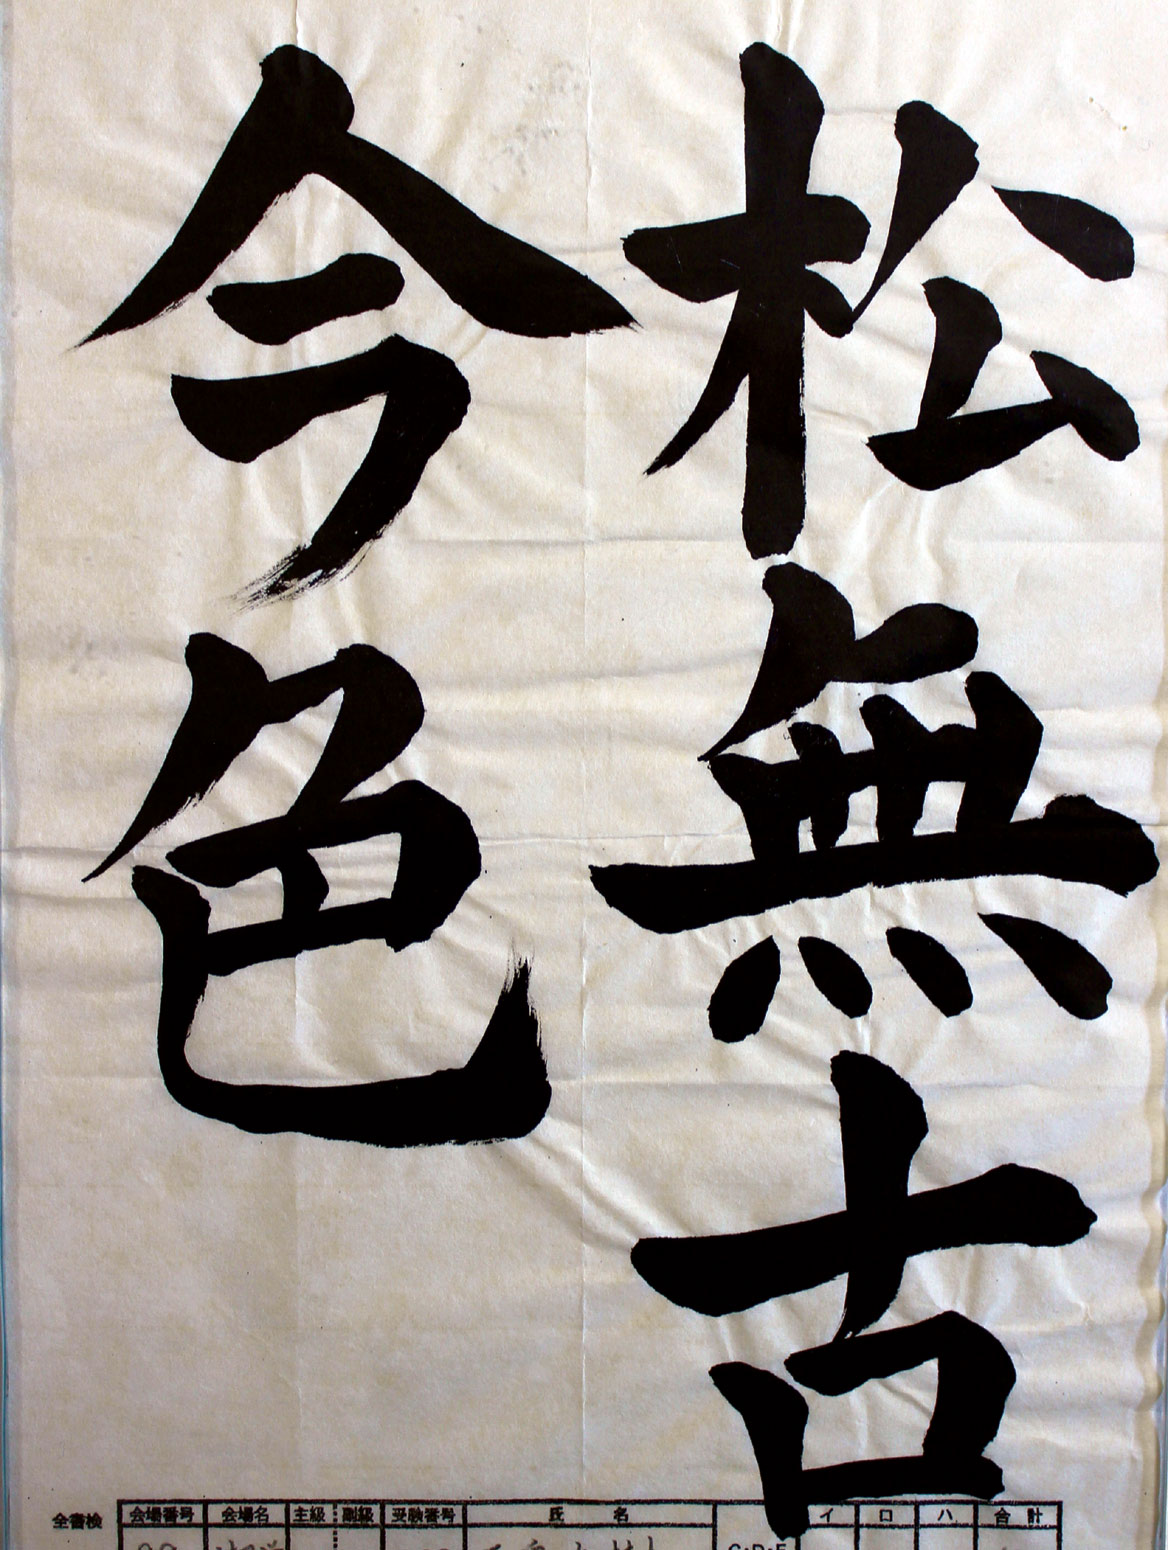 松無古
今色
全書検
会場番号 会場名 主級 副級 受験番号 氏 名 イ ロ ハ 合 計
C・D・E